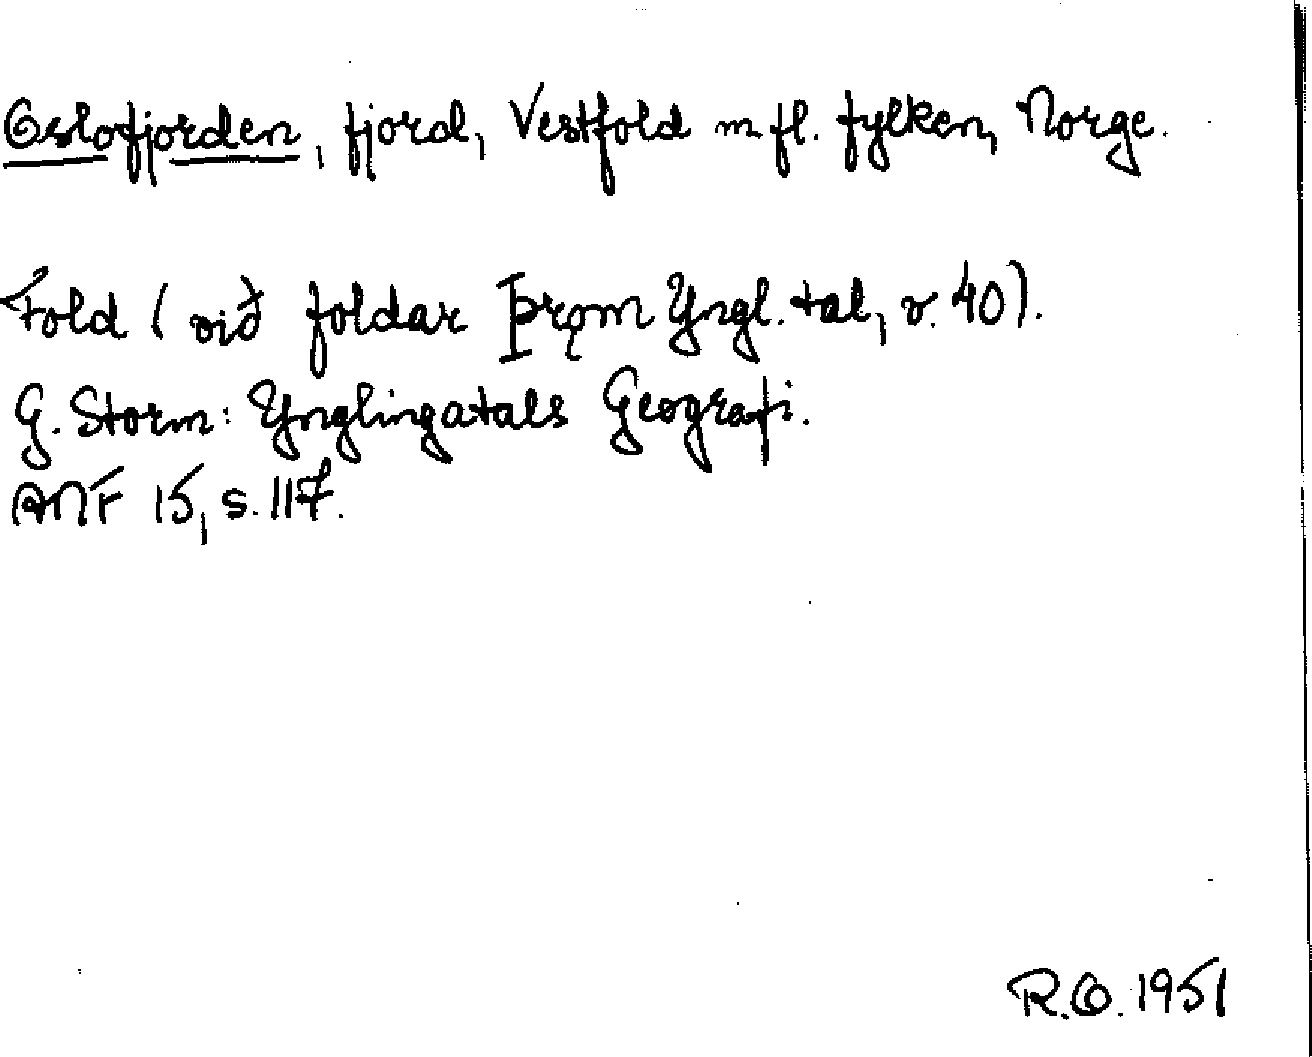 Oslofjorden, fjord, Vestfold m. fl. fylken, Norge.
Fold (við foldar þrǫm Yngl. tal, v. 40).
G. Storm: Ynglingatals Geografi.
ANF 15, s. 117.
R.O. 1951